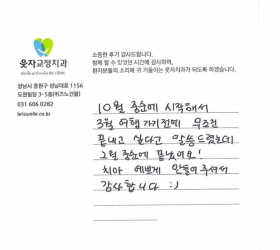 웃자교정치과
소중한 후기 감사드립니다.
함께 할 수 있었던 시간에 감사하며,
환자분들의 소리에 귀 기울이는 웃자치과가 되도록 하겠습니다.
성남시 중원구 성남대로 1156
도원빌딩 3-5층(위즈노건물)
031 606 0282
letsmile.co.kr
10월 중순에 시작해서
3월 여행 가기전에 무조건
끝내고 싶다고 말씀 드렸는데
2월 중순에 끝났어요!
치아 예쁘게 만들어주셔서
감사합니다 :)